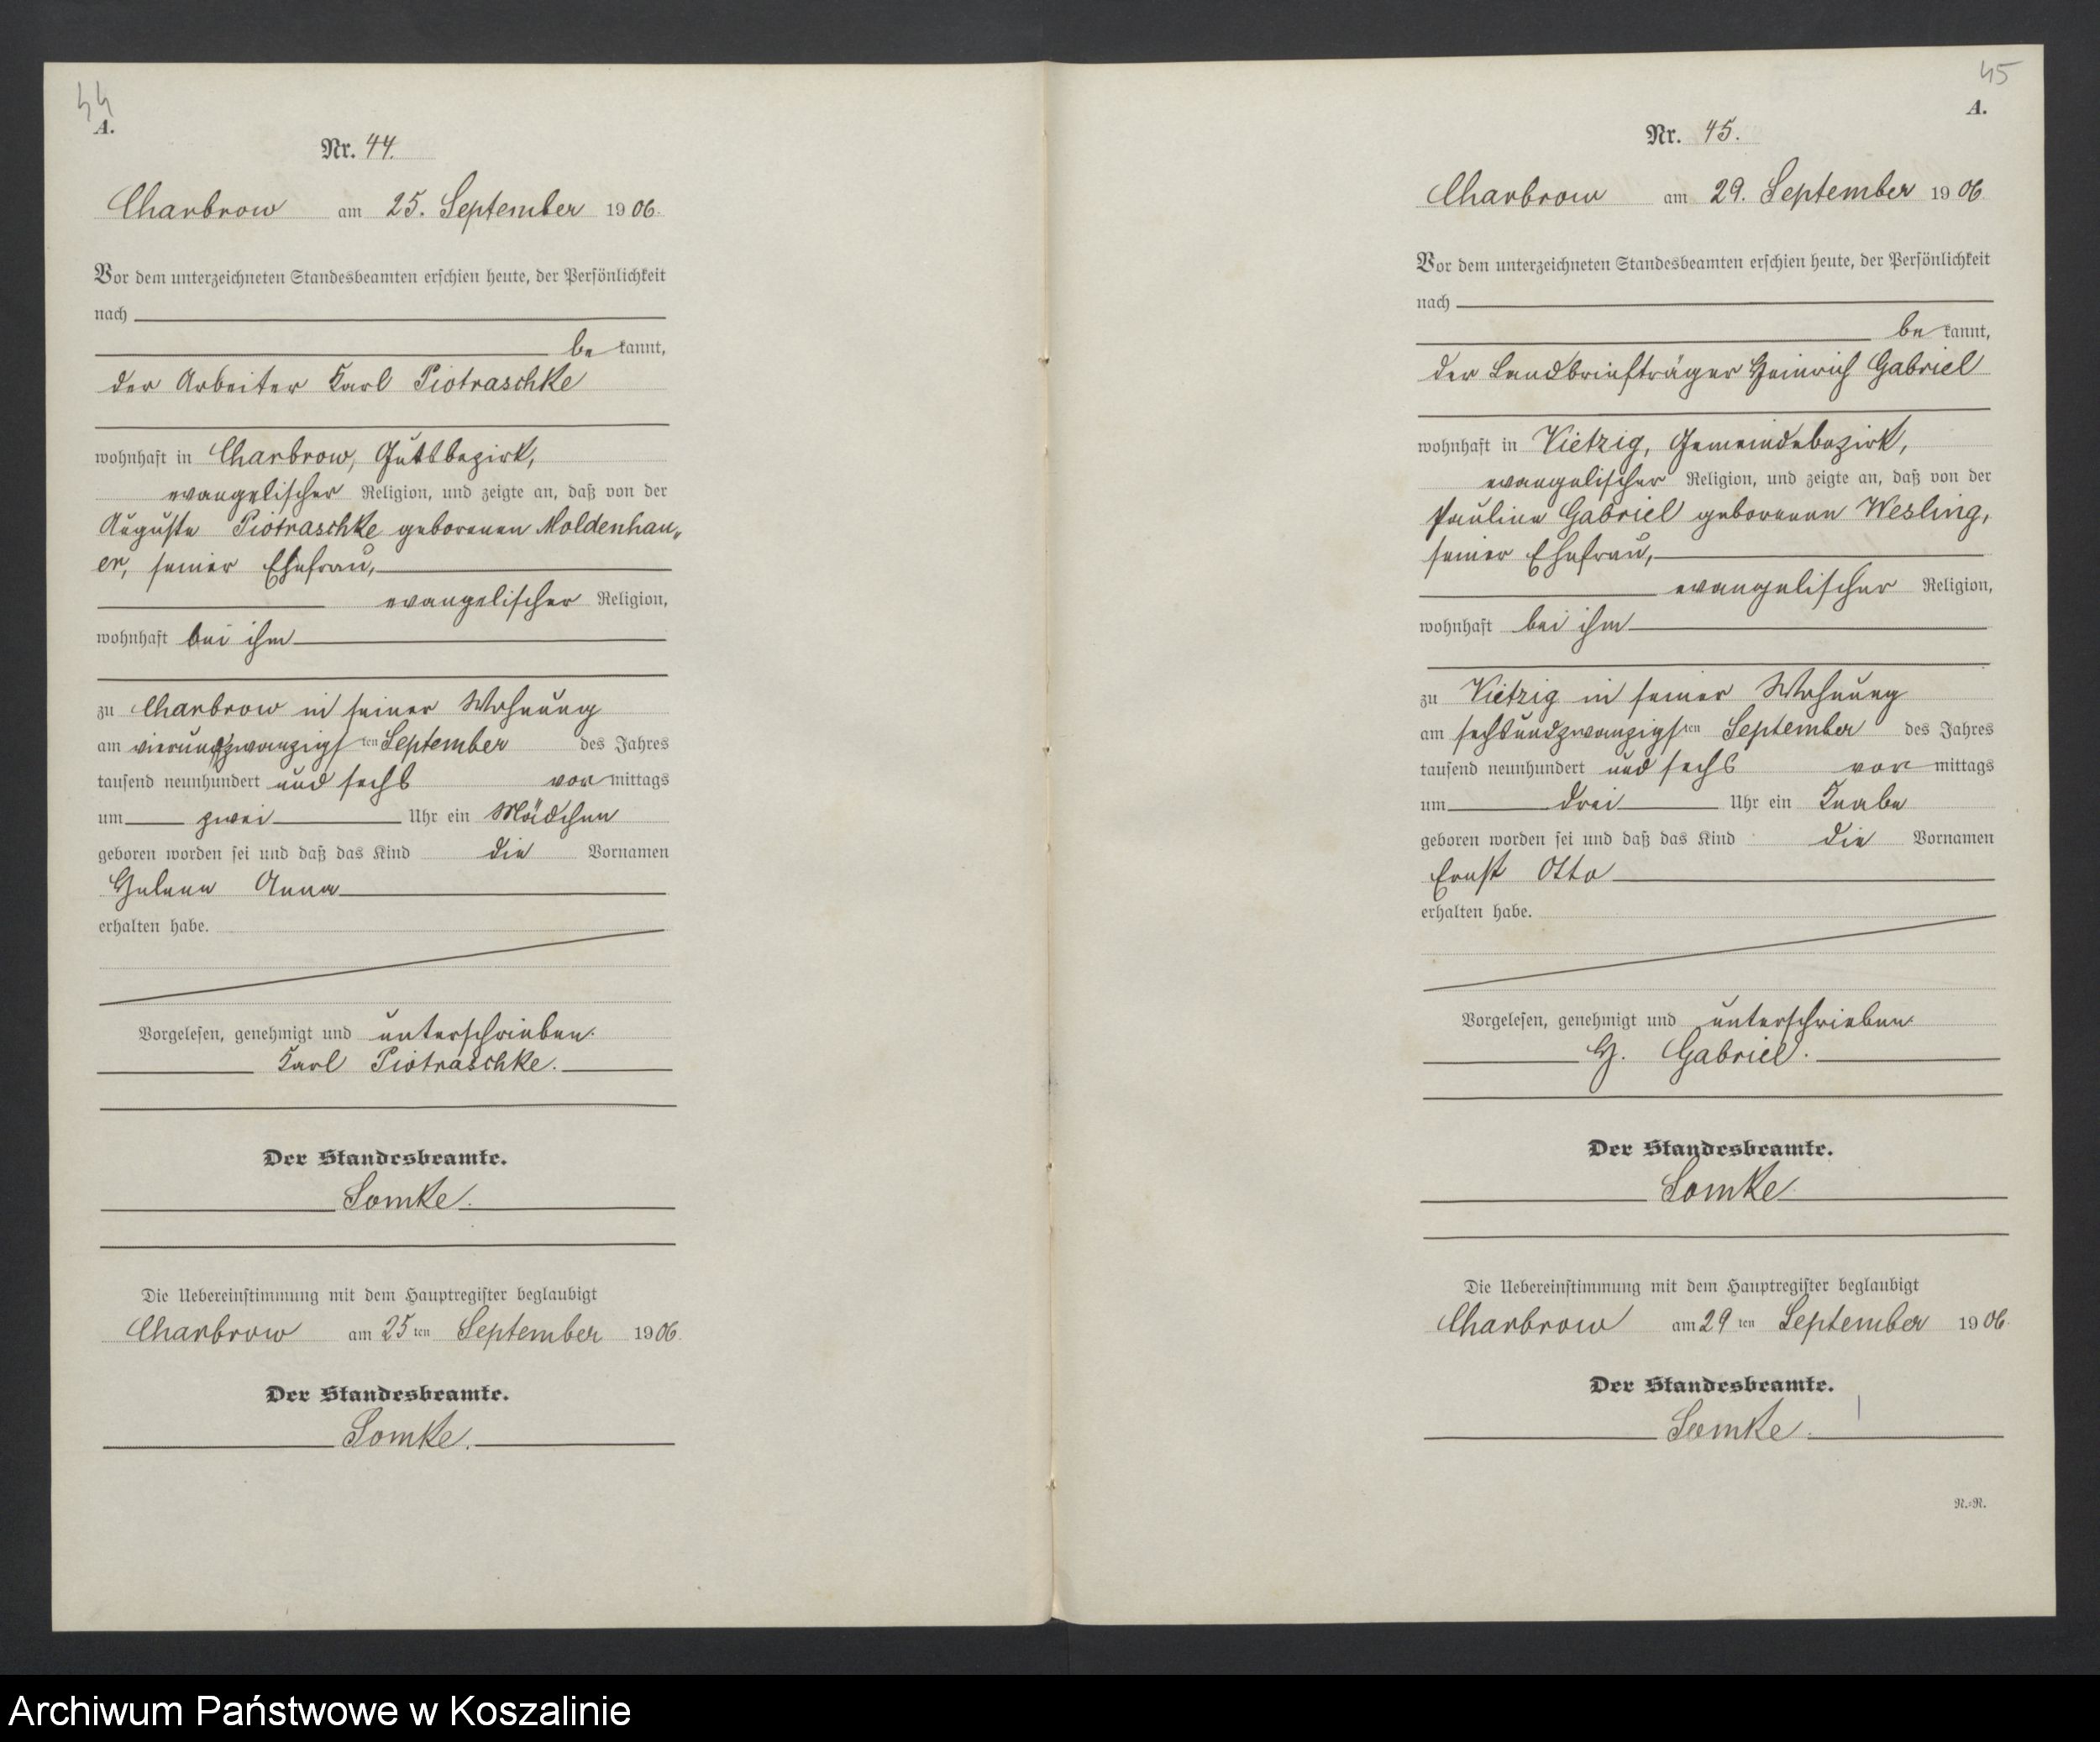 44
A.
Nr. 44.
Charbrow am 25. September 1906.
Vor dem unterzeichneten Standesbeamten erschien heute, der Persönlichkeit
nach
be kannt,
der Arbeiter Karl Piotraschke
wohnhaft in Charbrow, Gutsbezirk,
evangelischer Religion, und zeigte an, daß von der
Auguste Piotraschke geborenen Moldenhau„
er, seiner Ehefrau,
evangelischer Religion,
wohnhaft bei ihm
zu Charbrow in seiner Wohnung
am vierundzwanzigsten September des Jahres
tausend neunhundert und sechs vor mittags
um zwei Uhr ein Mädchen
geboren worden sei und daß das Kind die Vornamen
Helene Anna
erhalten habe.
Vorgelesen, genehmigt und unterschrieben.
Karl Piotraschke.
Der Standesbeamte.
Somke.
Die Uebereinstimmung mit dem Hauptregister beglaubigt
Charbrow am 25 ten September 1906.
Der Standesbeamte.
Somke.
45
A.
Nr. 45.
Charbrow am 29. September 1906
Vor dem unterzeichneten Standesbeamten erschien heute, der Persönlichkeit
nach
be kannt,
der Landbriefträger Heinrich Gabriel
wohnhaft in Vietzig, Gemeindebezirk,
evangelischer Religion, und zeigte an, daß von der
Pauline Gabriel geborenen Wesling,
seiner Ehefrau,
evangelischer Religion,
wohnhaft bei ihm
zu Vietzig in seiner Wohnung
am sechsundzwanzigsten September des Jahres
tausend neunhundert und sechs vor mittags
um drei Uhr ein Knabe
geboren worden sei und daß das Kind die Vornamen
Ernst Otto
erhalten habe.
Vorgelesen, genehmigt und unterschrieben.
H. Gabriel.
Der Standesbeamte.
Somke.
Die Uebereinstimmung mit dem Hauptregister beglaubigt
Charbrow am 29 ten September 1906.
Der Standesbeamte.
Somke.
R.-R.
Archiwum Państwowe w Koszalinie